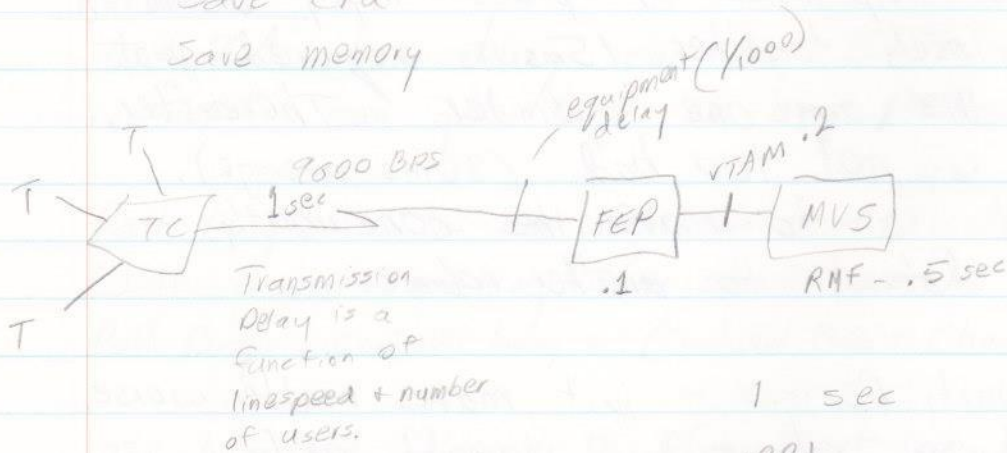 Save CPU
Save memory
equipment (1/1000)
delay
T
T
T
TC
9600 BPS
1 sec
FEP
.1
VTAM .2
MVS
RMF - .5 sec
Transmission
Delay is a
function of
linespeed + number
of users.
1 sec
.001